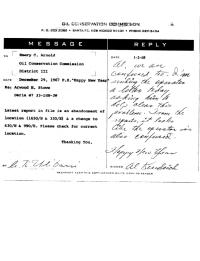 OIL CONSERVATION COMMISSION
P. O. BOX 2088 - SANTA FE, NEW MEXICO 87501
MESSAGE
REPLY
TO Emery C. Arnold
Oil Conservation Commission
District III
DATE December 29, 1967 P.S."Happy New Year"
Re: Arwood H. Stowe
Davis #7 33-26N-
Latest report in file is an abandonment of
location (1650/S & 330/E) & a change to
630/S & 990/E. Please check for correct
location.
Thanking You.
DATE 1-2-68
Al, we are
confused too. I'm
writing the operator
a letter today
asking him to
help clear this
problem. From the
reports, it looks
like the operator is
also confused.
Happy New Year
SIGNED Al Kendrick